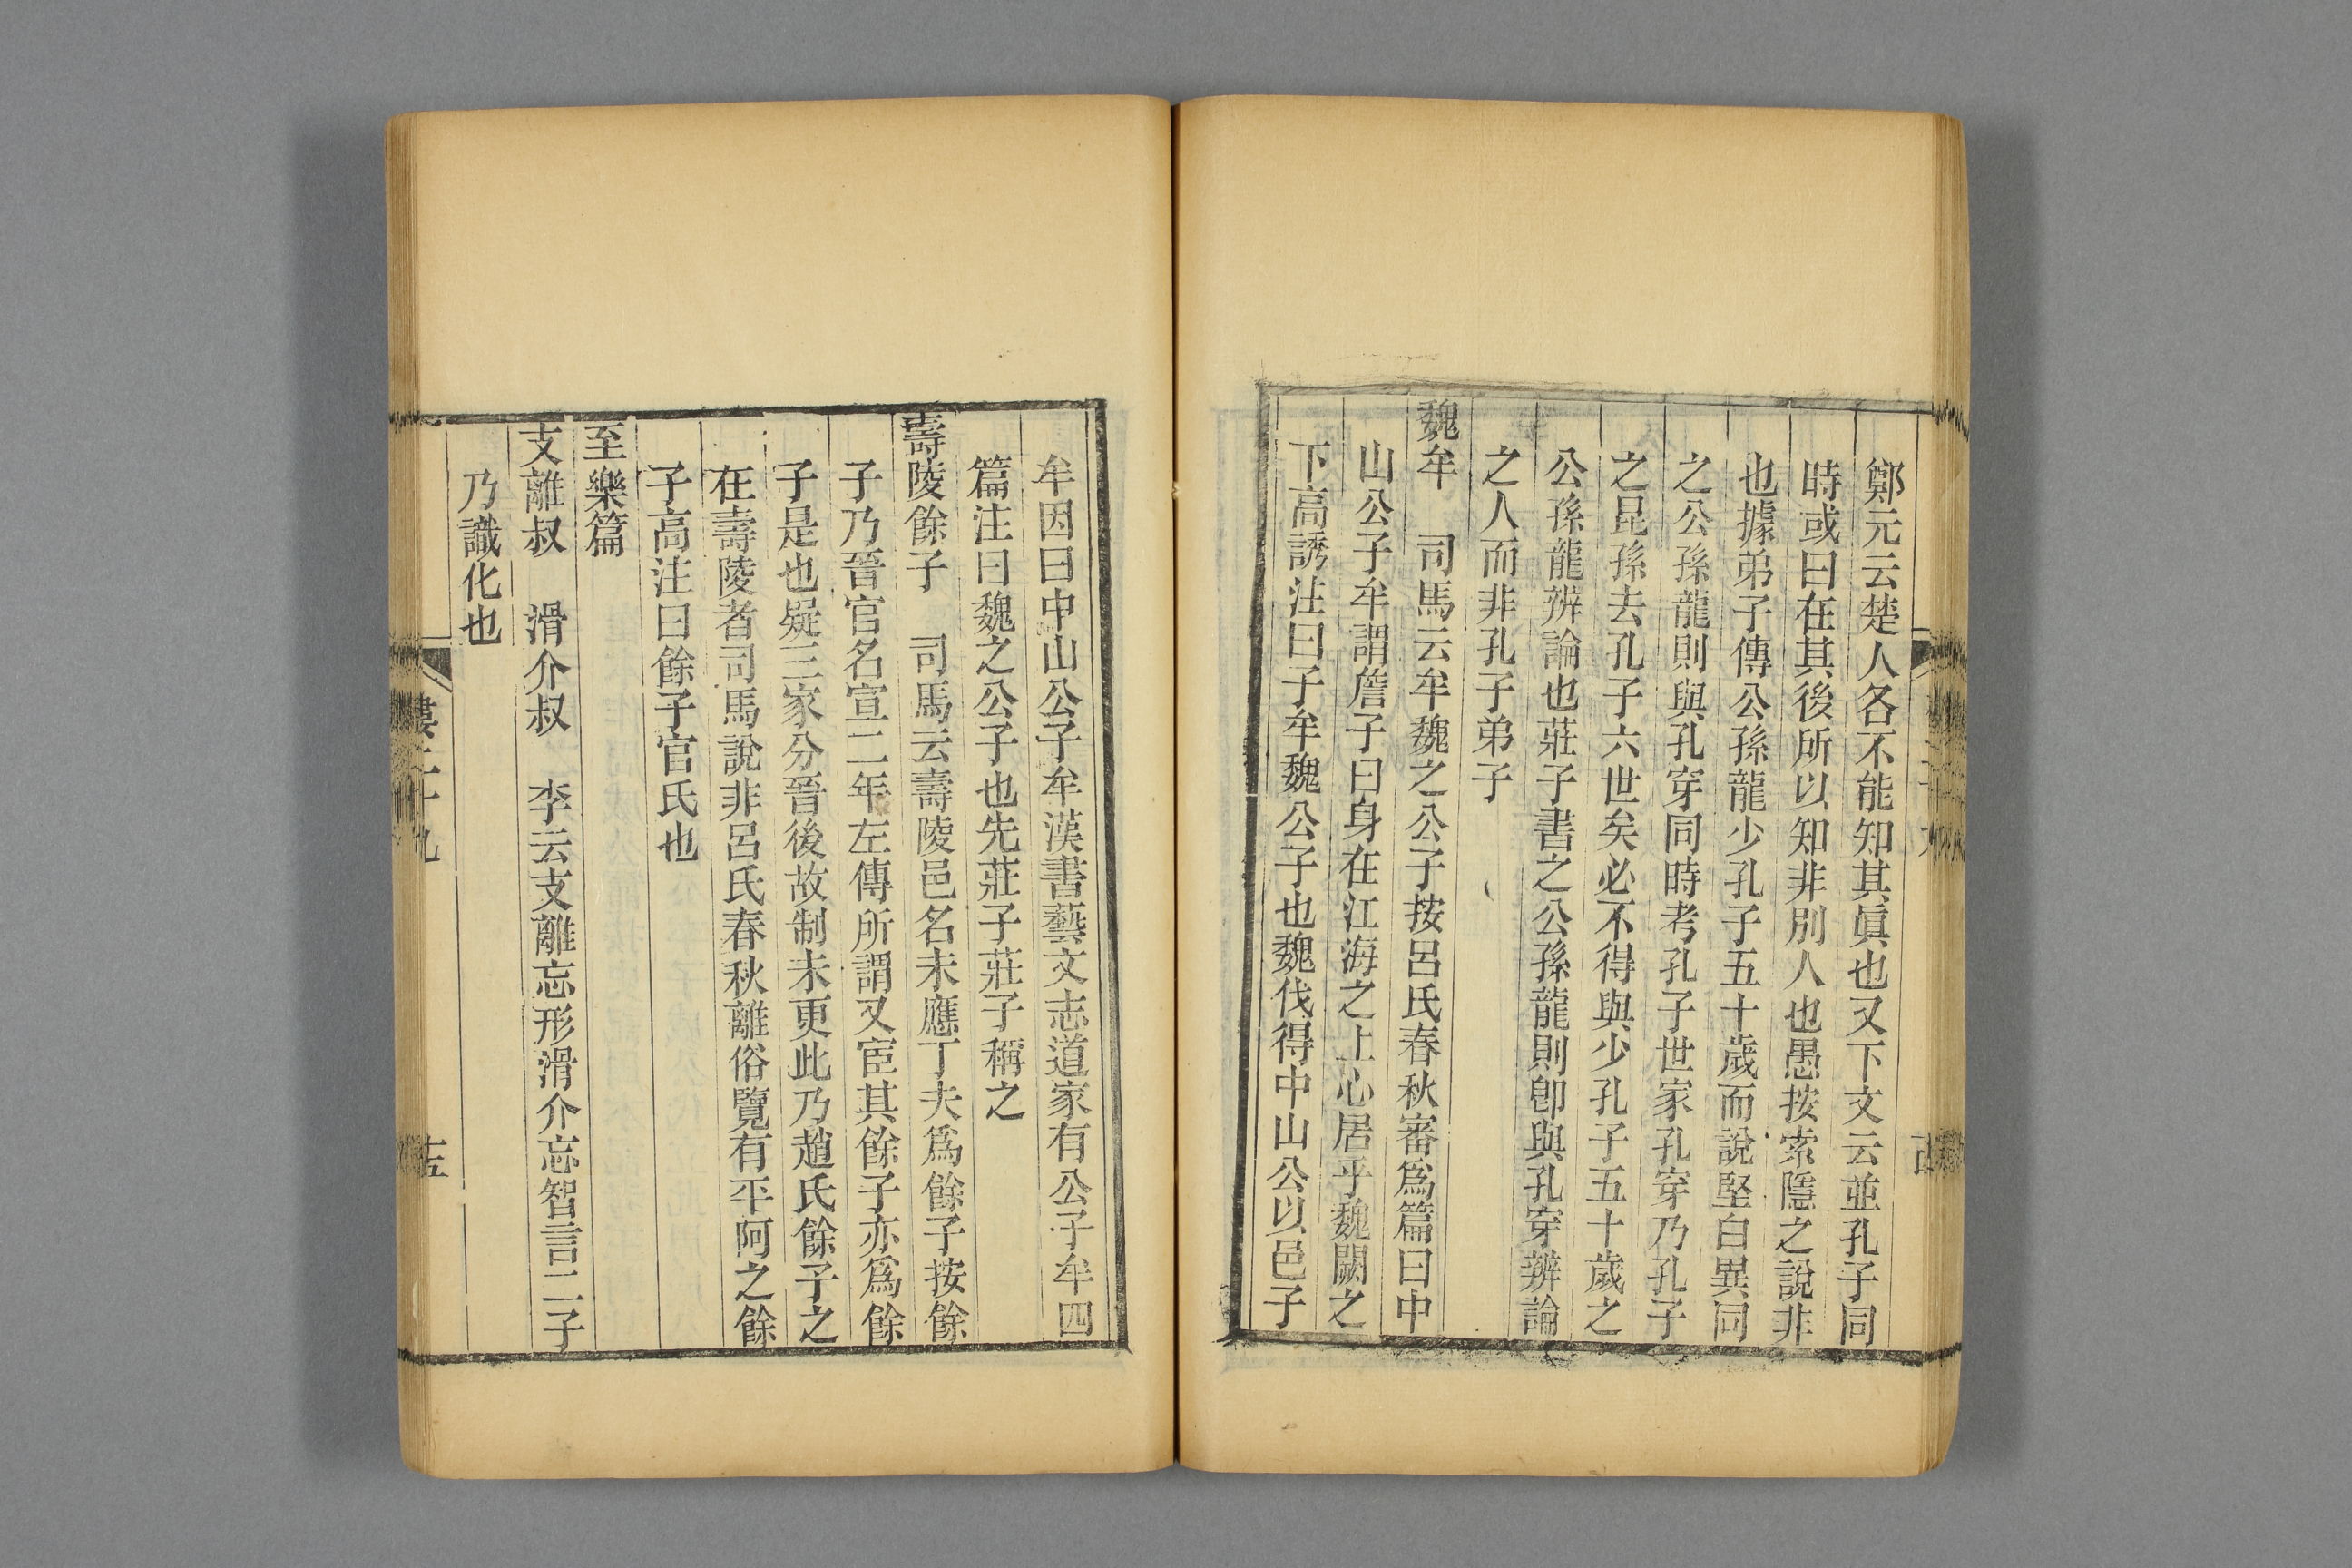 鄭元云楚人各不能知其眞也又下文云並孔子同
時或曰在其後所以知非別人也愚按索隱之說非
也據弟子傳公孫龍少孔子五十歲而說堅白異同
之公孫龍則與孔穿同時考孔子世家孔穿乃孔子
之昆孫去孔子六世矣必不得與少孔子五十歲之
公孫龍辨論也莊子書之公孫龍則卽與孔穿辨論
之人而非孔子弟子
魏牟　司馬云牟魏之公子按呂氏春秋審爲篇曰中
山公子牟謂詹子曰身在江海之上心居乎魏闕之
下高誘注曰子牟魏公子也魏伐得中山公以邑子
牟因曰中山公子牟漢書藝文志道家有公子牟四
篇注曰魏之公子也先莊子莊子稱之
壽陵餘子　司馬云壽陵邑名未應丁夫爲餘子按餘
子乃晉官名宣二年左傳所謂又宦其餘子亦爲餘
子是也疑三家分晉後故制未更此乃趙氏餘子之
在壽陵者司馬說非呂氏春秋離俗覽有平阿之餘
子高注曰餘子官氏也
至樂篇
支離叔　滑介叔　李云支離忘形滑介忘智言二子
乃識化也